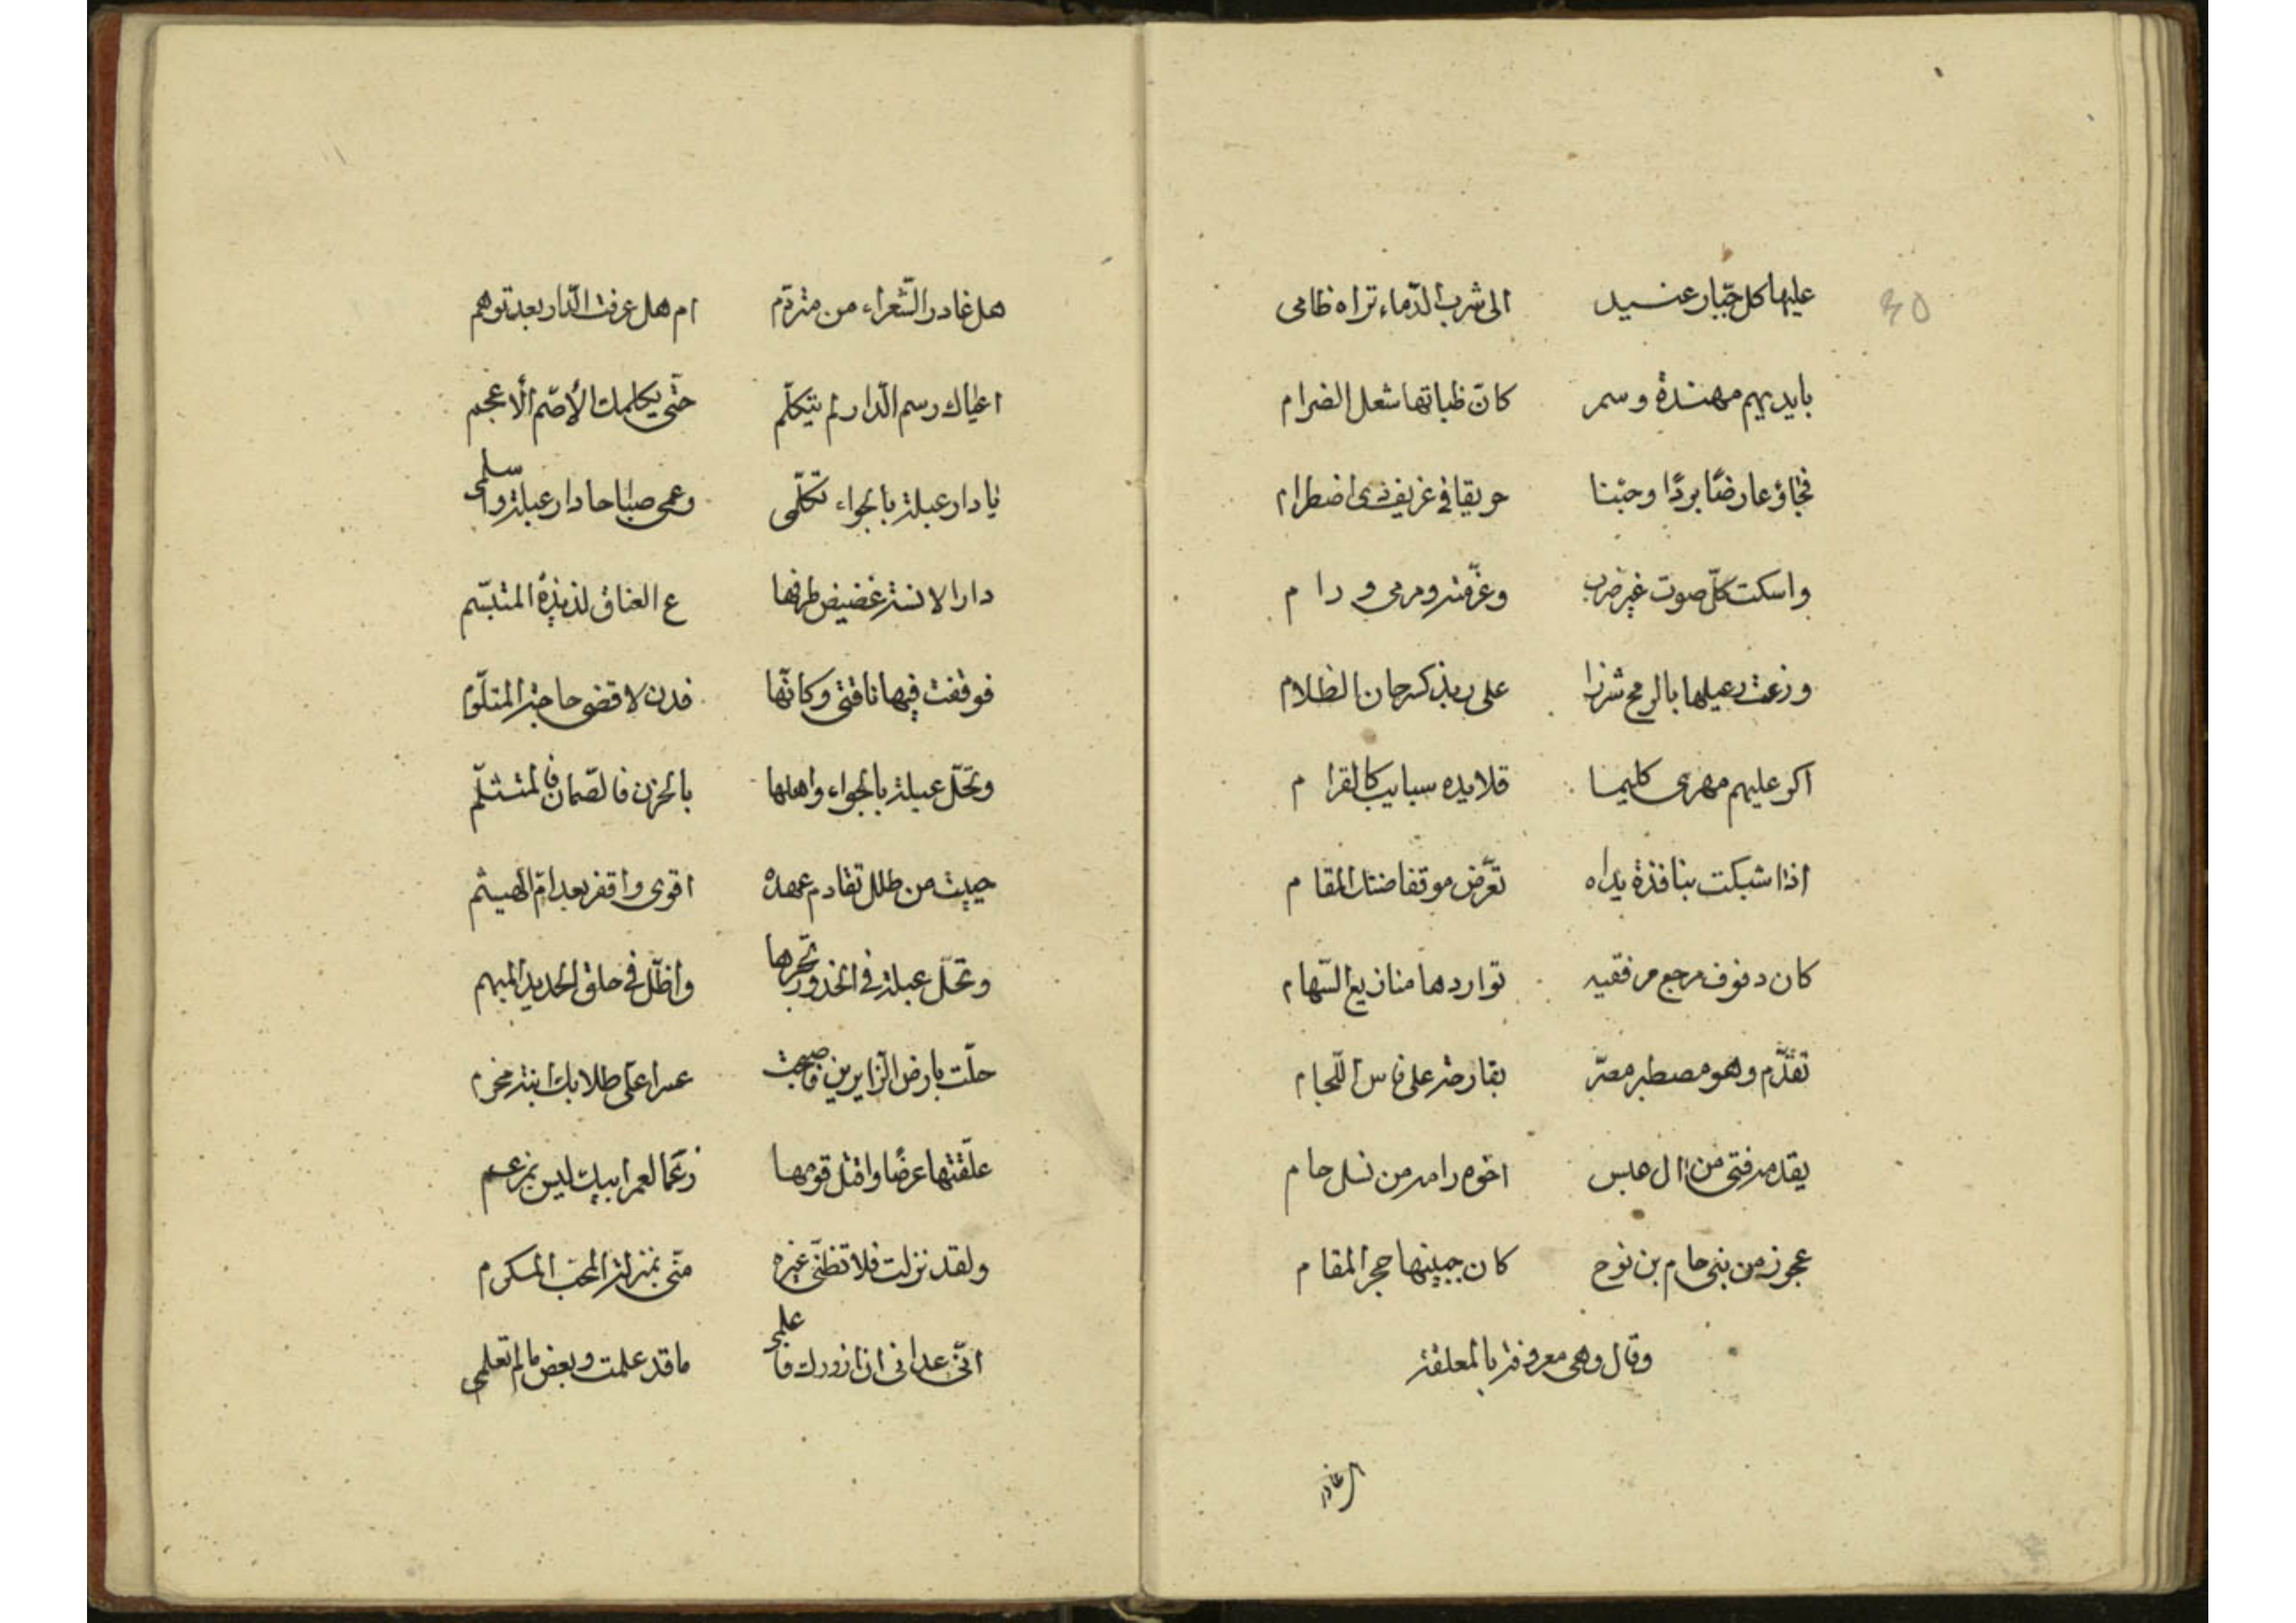 30
عليها كل جبّار عنسيد الى شرب الدّماء تراه ظامى
بايديهم مهندة وسمر كانّ ظباتها شعل الضرام
فجاؤ عارضًا بردًا وجئنا حريقا فى غريف ذى اضطرام
واسكت كلّ صوت غير ضرب وعترفة ومرمى و را م
وزعت رعيلها بالرمح شزرا على ربذ كسرحان الظلام
اكر عليهم مهرى كليما قلايده سبايب كالقرا م
اذا شبكت بنافذة يداه تعرّض موقفا ضنك المقا م
كان دفوف مرجع مرفقيه تواردها منازيع السّهام
تقدّم وهو مصطبر مصرّ بقارحه على فاس اللّجام
يقدمه فتى من ال عبس اخوه رامه من نسل حا م
عجوز من بنى حام بن نوح كان جبينها حجر المقا م
وقال وهى معروفة بالمعلقة
هل غادر
هل غادر الشّعراء من متردّم ام هل عرفت الدّار بعد توهم
اعياك رسم الدّار لم يتكلّم حتّى يكلمك الأصّم الأعجم
يا دار عبلة بالجواء تكلّمى وعمى صباحا دار عبلة واسلمى
دار لانسة غضيض طرفها ع العناق لذيذة المتبسّم
فوقفت فيها ناقتى وكانّها فدن لاقضى حاجة المتلوّم
وتحلّ عبلة بالجواء واهلها بالحزن فالصّمان فالمتثلّم
حييت من طلل تقادم عهده اقوى واقفر بعد امّ الهيثم
وتحلّ عبلة فى الخدور تجرها واظلّ فى حلق الحديد المبهم
حلّت بارض الزايرين فاصبحت عسرا علىّ طلابك ابنة مخرم
علّقتها عرضًا واقتل قومها زعمًا لعمر ابيك ليس بمزعم
ولقد نزلت فلا تظنّى غيره منّى بمنزلة المحبّ المكرم
انّى عدانى ان ازورك فاعلمى ما قد علمت وبعض ما لم تعلمى